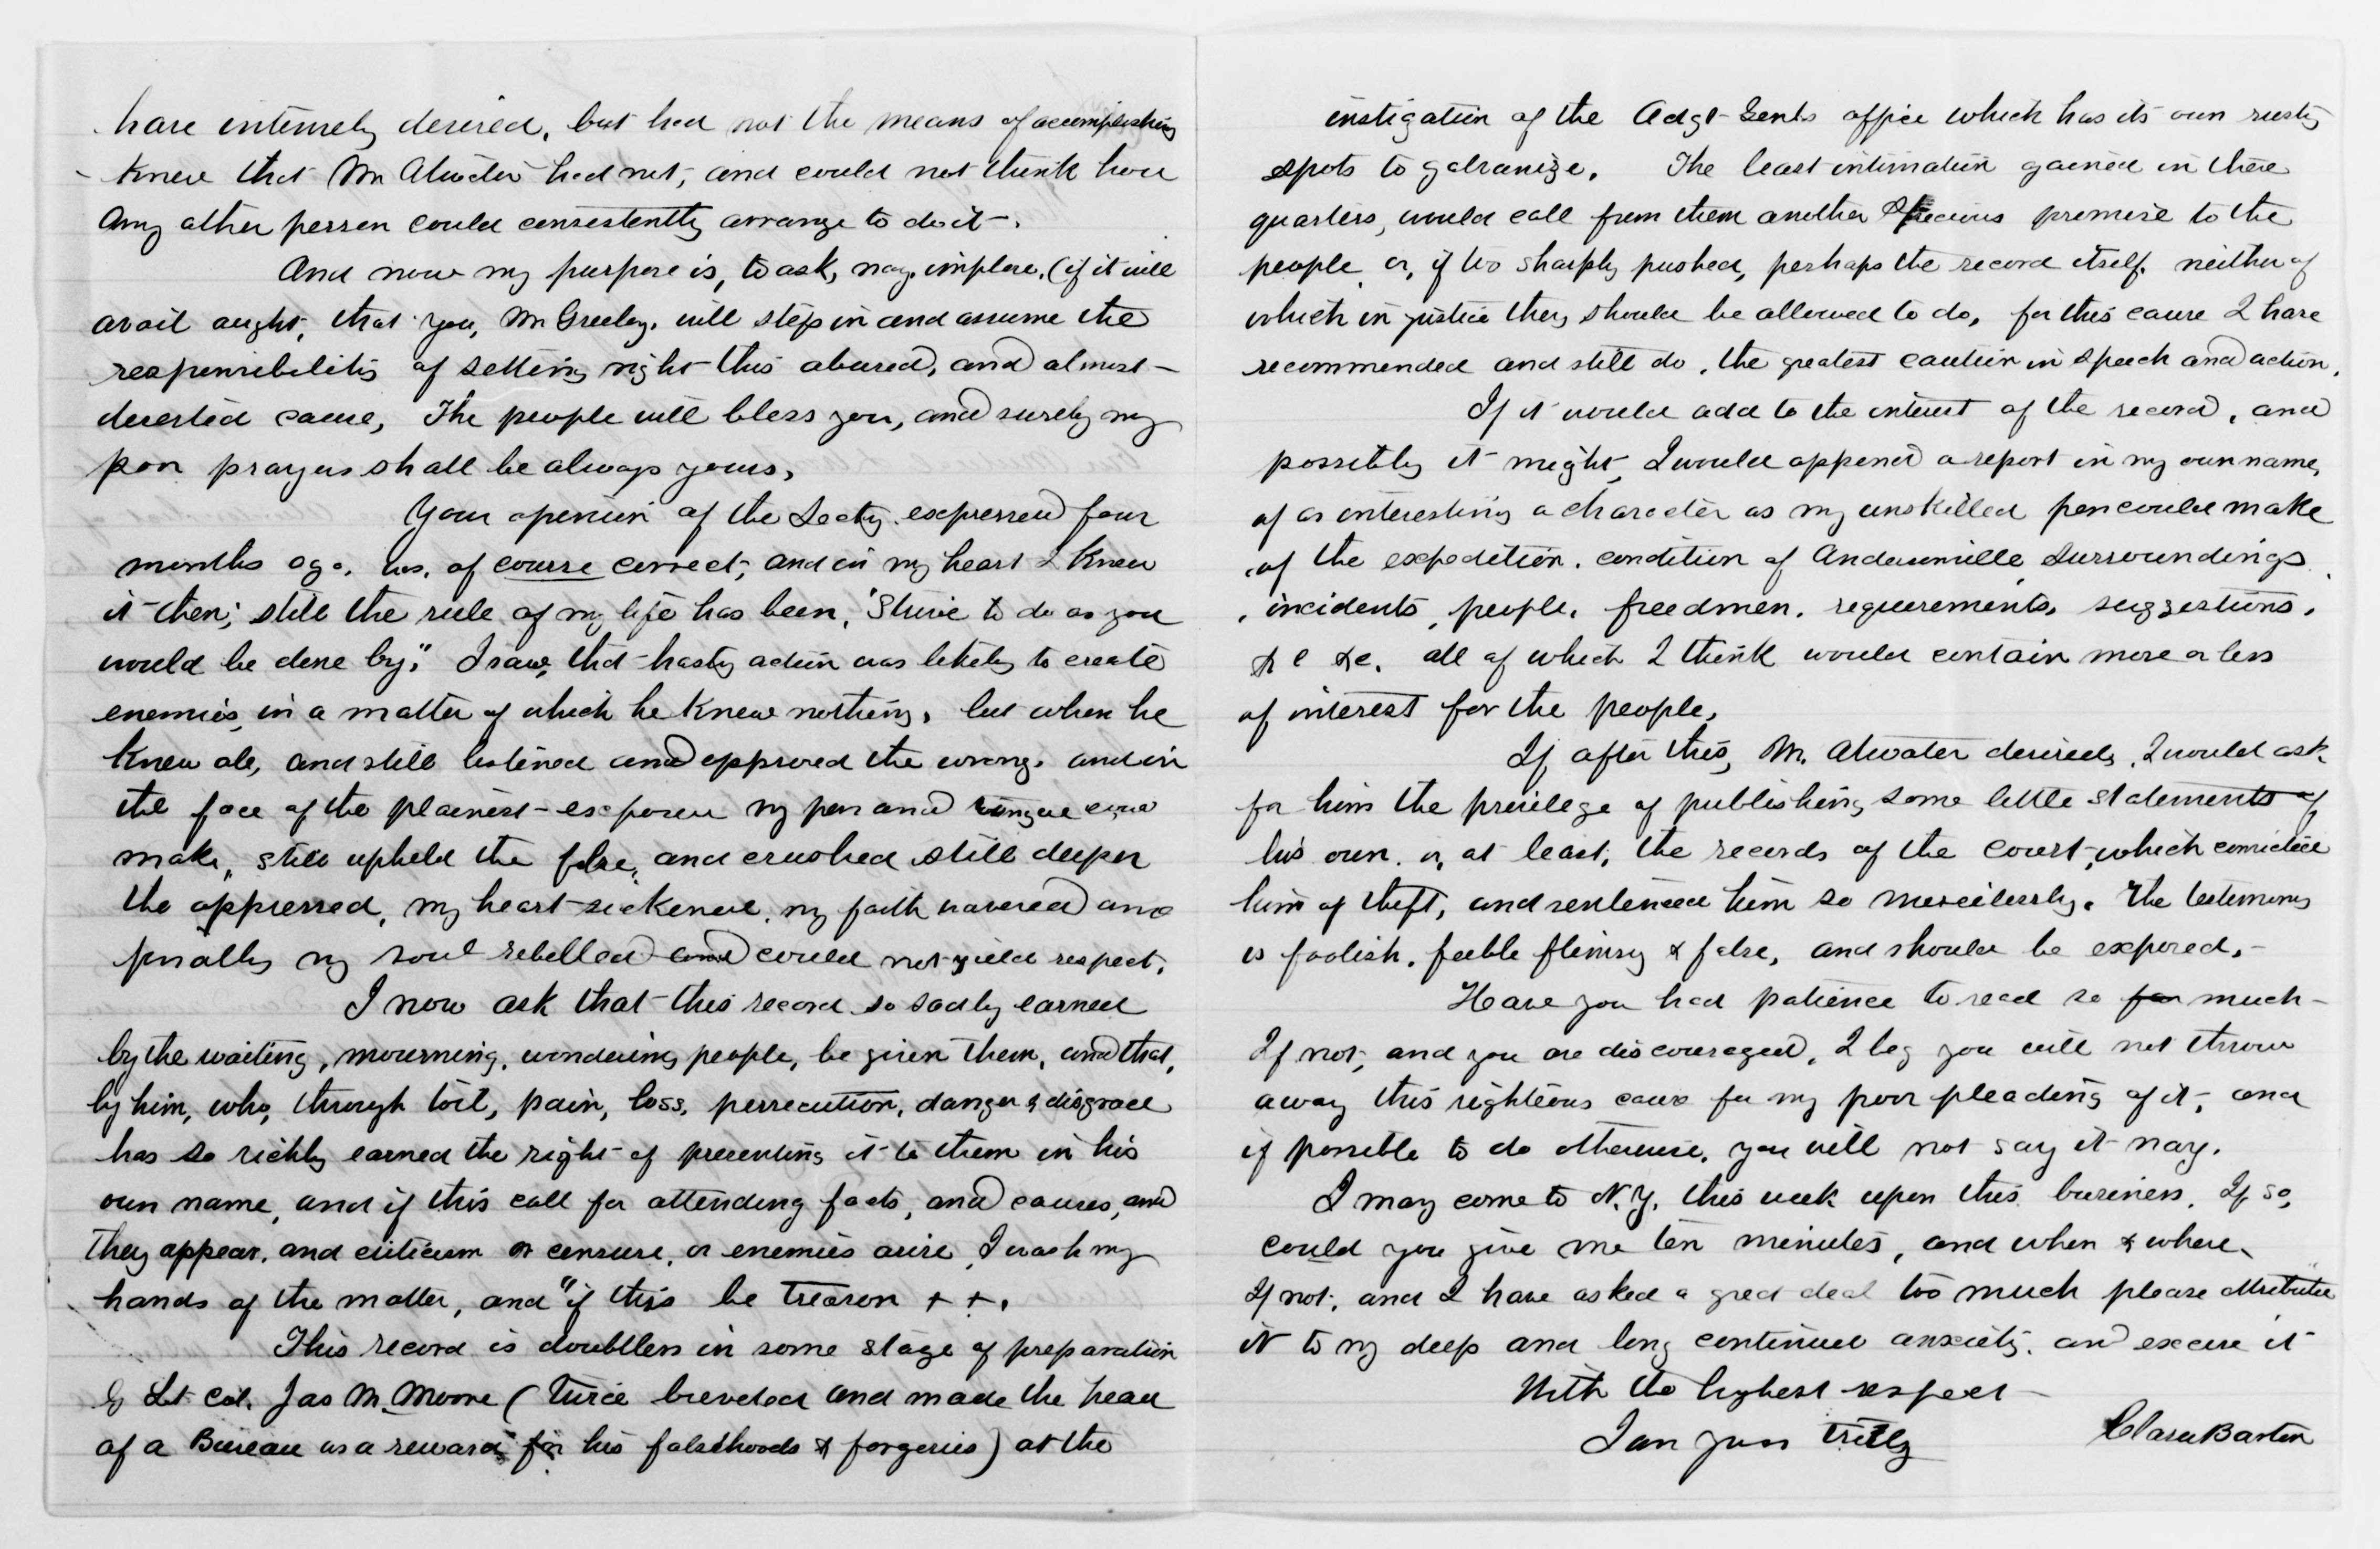 have intensely desired, but had not the means of accomplishing
knew that Mr Atwater had not, and could not think how
any other person could consistently arrange to do it—.
And now my purpose is, to ask, nay, implore, (if it will
avail aught, that you, Mr Greeley, will step in and assume the
responsibilities of setting right this abused, and almost—
deserted cause, The people will bless you, and surely my
poor prayers shall be always yours,
Your opinion of the Secty expressed four
months ago, was, of course correct, and in my heart I knew
it then; still the rule of my life has been, "Strive to do as you
would be done by," I saw, that hasty action was likely to create
enemies, in a matter of which he knew nothing, but when he
knew all, and still listened and approved the wrong, and in
the face of the plainest exposure my pen and tongue could
make, still upheld the false, and crushed still deeper
the oppressed, my heart sickened, my faith wavered and
finally my soul rebelled and could not yield respect.
I now ask that this record so sadly earned
by the waiting, mourning, wondering people, be given them, and that,
by him, who, through toil, pain, loss, persecution, danger & disgrace
has so richly earned the right of presenting it to them in his
own name, and if this call for attending facts, and causes, and
they appear, and criticism or censure, or enemies arise, I wash my
hands of the matter, and "if this be treason + +.
This record is doubtless in some stage of preparation
by Lt Col. Jas M. Moore (twice breveted and made the head
of a Bureau as a reward for his falsehoods & forgeries) at the
instigation of the Adgt Genls office which has its own rusty
spots to galvanize. The least intimation gained in there
quarters, would call from them another specious promise to the
people, or, if too sharply pushed, perhaps the record itself, neither of
which in justice they should be allowed to do, for this cause I have
recommended and still do, the greatest caution in speech and action.
If it would add to the interest of the record, and
possibly it might, I would append a report in my own name,
of as interesting a character as my unskilled pen could make
of the expedition, condition of Andersonville, surroundings,
incidents, people, freedmen, requirements, suggestions,
&c &c, all of which I think would contain more or less
of interest for the people,
If after this, Mr. Atwater desired, I would ask
for him the privilege of publishing some little statements of
his own, or, at least, the records of the court, which convicted
him of theft, and sentenced him so mercilessly. The testimony
is foolish, feeble flimsy & false, and should be exposed,—
Have you had patience to read so far much—
If not, and you are discouraged, I beg you will not throw
away this righteous cause for my poor pleading of it, and
if possible to do otherwise, you will not say it nay.
I may come to N.Y. this week upon this business. If so,
could you give me ten minutes, and when & where.
If not, and I have asked a great deal too much please attribute
it to my deep and long continued anxiety, and excuse it
With the highest respect—
I am yours truly
Clara Barton